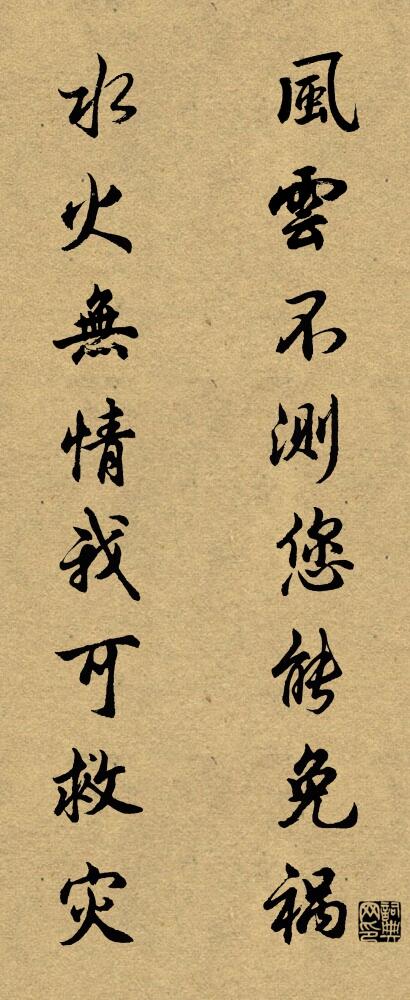 風雲不測您能免禍
水火無情我可救灾
詞典网印